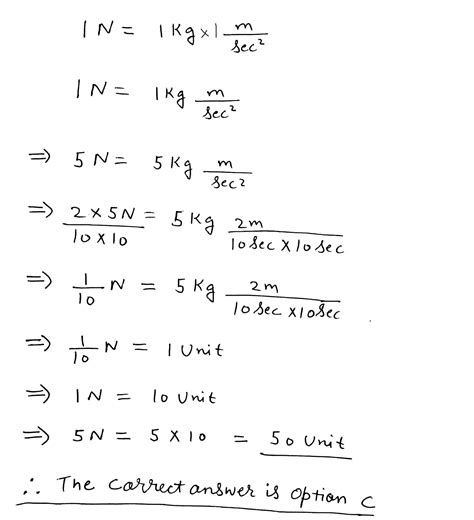 1 N = 1 Kg × 1 m/sec²
1 N = 1 Kg m/sec²
⇒ 5 N = 5 Kg m/sec²
⇒ 2 × 5 N / 10 × 10 = 5 Kg 2m / 10 sec × 10 sec
⇒ 1/10 N = 5 Kg 2m / 10 sec × 10 sec
⇒ 1/10 N = 1 Unit
⇒ 1 N = 10 Unit
⇒ 5 N = 5 × 10 = 50 Unit
∴ The correct answer is option C